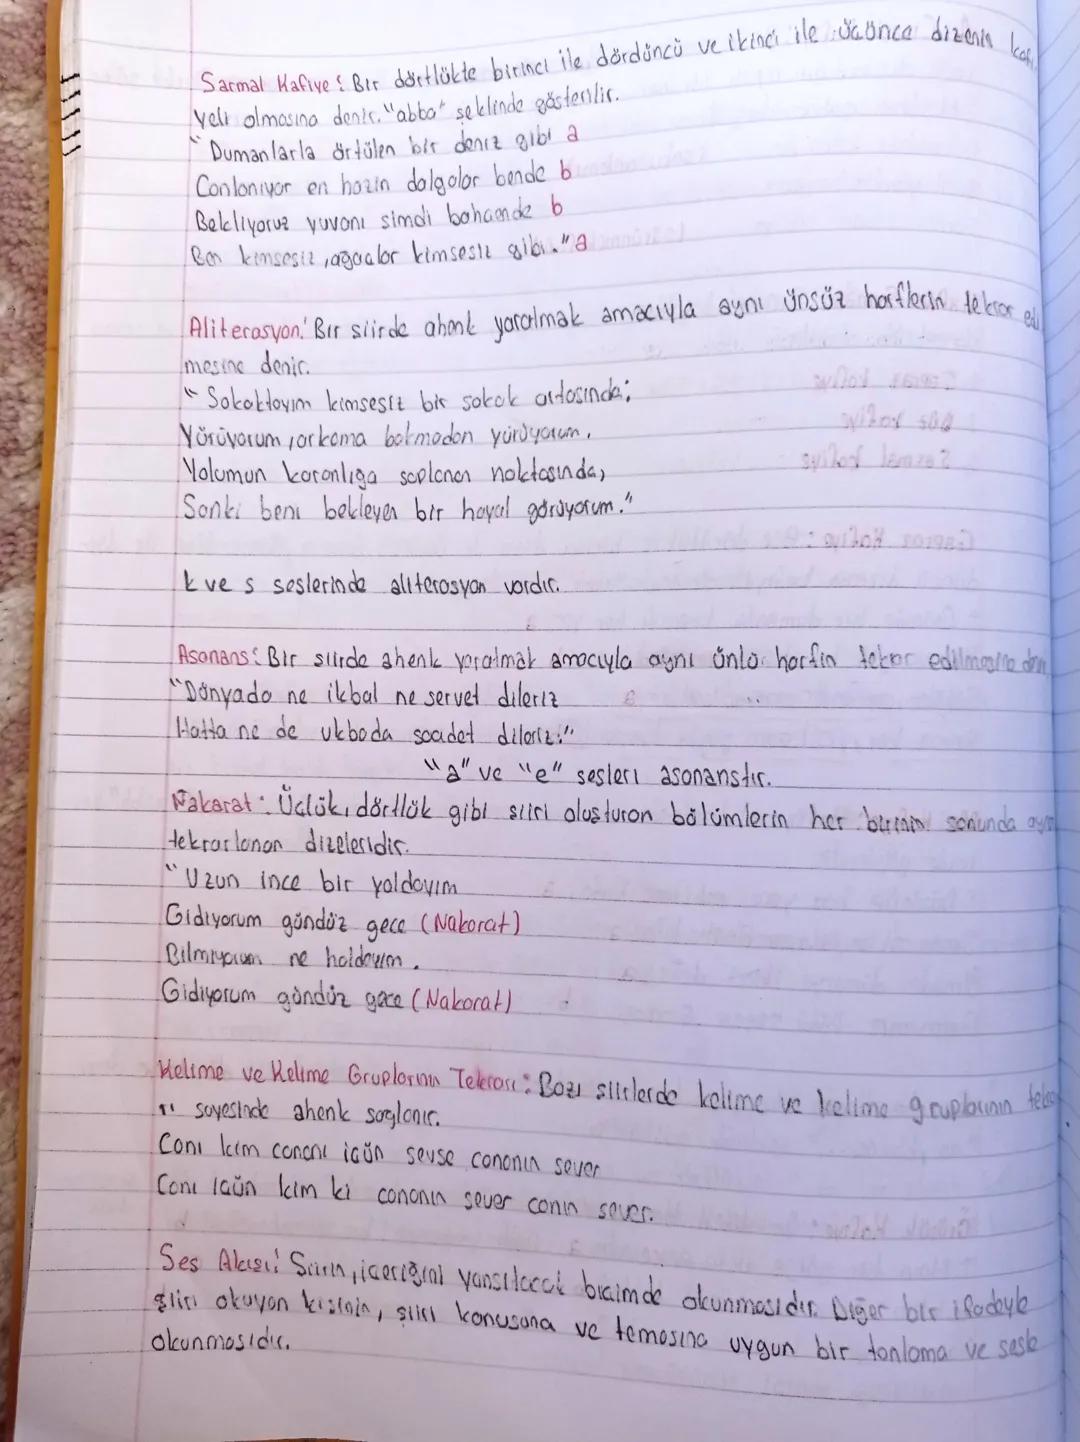 Sarmal Kafiye: Bir dörtlükte birinci ile dördüncü ve ikinci ile üçünce dizenin kafi
yeli olmasına denir. "abba" şeklinde gösterilir.
"Dumanlarla örtülen bir deniz gibi a
Canlanıyor en hazin dalgalar bende b
Bekliyoruz yuvanı simdi bahcende b
Ben kimsesiz, ağaclar kimsesiz gibi." a
Aliterasyon: Bir siirde ahenk yaratmak amacıyla aynı ünsüz harflerin tekrar edil
mesine denir.
"Sokaktayım kimsesiz bir sokak ortasında;
Yürüyorum, arkama bakmadan yürüyorum,
Yolumun karanlığa saplanan noktasında,
Sanki beni bekleyen bir hayal görüyorum."
k ve s seslerinde aliterasyon vardır.
Asonans: Bir siirde ahenk yaratmak amacıyla aynı ünlü harfin tekrar edilmesine denir
"Dünyada ne ikbal ne servet dileriz
Hatta ne de ukbada saadet dileriz."
"a" ve "e" sesleri asonanstır.
Nakarat: Üclük, dörtlük gibi siiri oluşturan bölümlerin her birinin sonunda aynı
tekrarlanan dizeleridir.
"Uzun ince bir yoldayım
Gidiyorum gündüz gece (Nakarat)
Bilmiyorum ne haldayım.
Gidiyorum gündüz gece (Nakarat)
Kelime ve Kelime Gruplarının Tekrarı: Bazı siirlerde kelime ve kelime gruplarının tekra
rı sayesinde ahenk sağlanır.
Canı kim cananı icün sevse cananın sever
Canı icün kim ki cananın sever canın sever.
Ses Akışı: Siirin, iceriğini yansıtacak bicimde okunmasıdır. Diğer bir ifadeyle
şiiri okuyan kisinin, şiiri konusuna ve temasına uygun bir tonlama ve sesle
okunmasıdır.